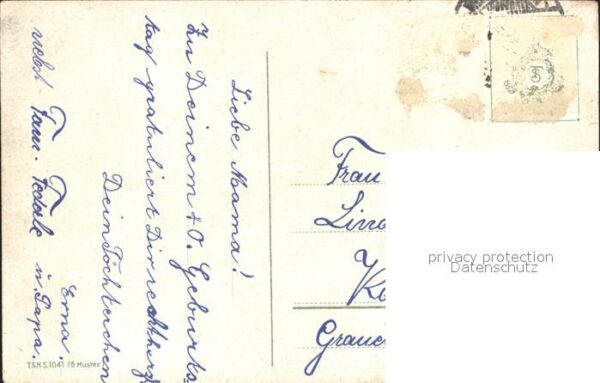 Liebe Mama!
Zu Deinem 40. Geburts-
tag gratuliert Dir recht herzl.
Dein Töchterchen
Erna.
nebst Fam. u. Papa.
Frau
Grauden
privacy protection
Datenschutz
T.S.N.S. 1041 (6 Muster)